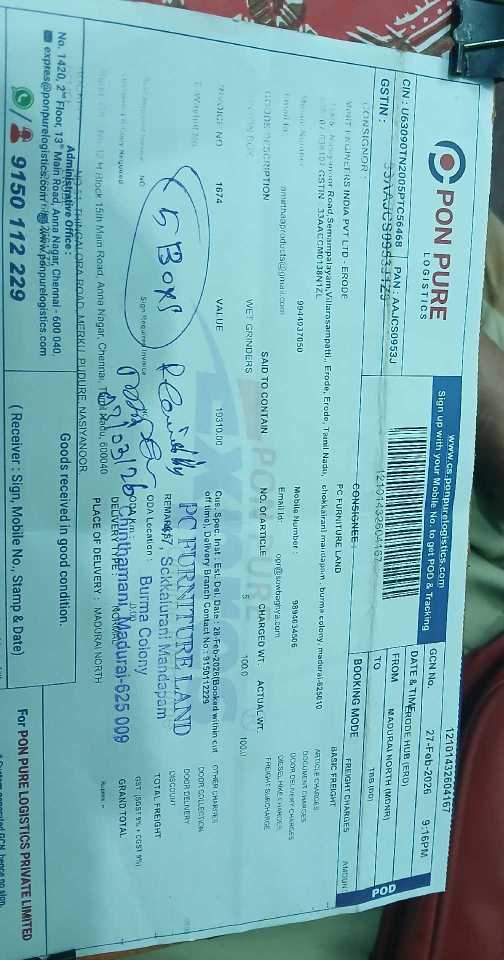 PON PURE
LOGISTICS
www.cs.ponpurelogistics.com
Sign up with your Mobile No. to get POD & Tracking
CIN : U63090TN2005PTC56468 PAN : AAJCS0953J
GSTIN : 33AAJCS0953J1Z9
12101432604167
GCN No. 12101432604167
DATE & TIME 27-Feb-2026 9:16PM
FROM ERODE HUB (ERD)
TO MADURAI NORTH (MDNR)
BOOKING MODE TBB (DD)
POD
CONSIGNOR :
ENGINEERS INDIA PVT LTD - ERODE
Road, Semampalayam, Villarasampatti, Erode, Erode, Tamil Nadu,
GSTIN : 33AACCM0138N1ZL
Mobile Number : 9944937050
Email Id : ammanproducts@gmail.com
CONSIGNEE :
PC FURNITURE LAND
chokkanani mandapam, burma colony, madurai-625010
Mobile Number : 9894034506
Email Id :
FREIGHT CHARGES AMOUNT
BASIC FREIGHT
ARTICLE CHARGES
DOCUMENT CHARGES
DOOR DELIVERY CHARGES
DIESEL HIKE CHARGES
FREIGHT SURCHARGE
OTHER CHARGES
DOOR COLLECTION
DOOR DELIVERY
DISCOUNT
TOTAL FREIGHT
GST (SGST 9% + CGST 9%)
GRAND TOTAL
Rupees :-
GOODS DESCRIPTION SAID TO CONTAIN NO. OF ARTICLE CHARGED WT. ACTUAL WT.
BOX WET GRINDERS 5 100.0 100.0
INVOICE NO 1674 VALUE 19310.00
E-WayBill No
Cus. Spec. Inst : Est. Del. Date : 28-Feb-2026(Booked within cut
off time), Delivery Branch Contact No : 9150112229
REMARKS
PC FURNITURE LAND
57, Sokkalurani Mandapam
Burma Colony
Chinthamani, Madurai-625 009
ODA Location :
ODA Km :
DELIVERY TYPE :
PLACE OF DELIVERY : MADURAI NORTH
Sign Required Invoice
5 Boxs
Received by
07/03/26
THINGALORA ROAD, MERKU PUDURE, NASIYANOOR
H Block 15th Main Road, Anna Nagar, Chennai, Tamil Nadu, 600040
Administrative Office :
No. 1420, 2nd Floor, 13th Main Road, Anna Nagar, Chennai - 600 040.
expres@ponpurelogistics.com www.ponpurelogistics.com
9150 112 229
Goods received in good condition.
( Receiver : Sign, Mobile No., Stamp & Date)
For PON PURE LOGISTICS PRIVATE LIMITED